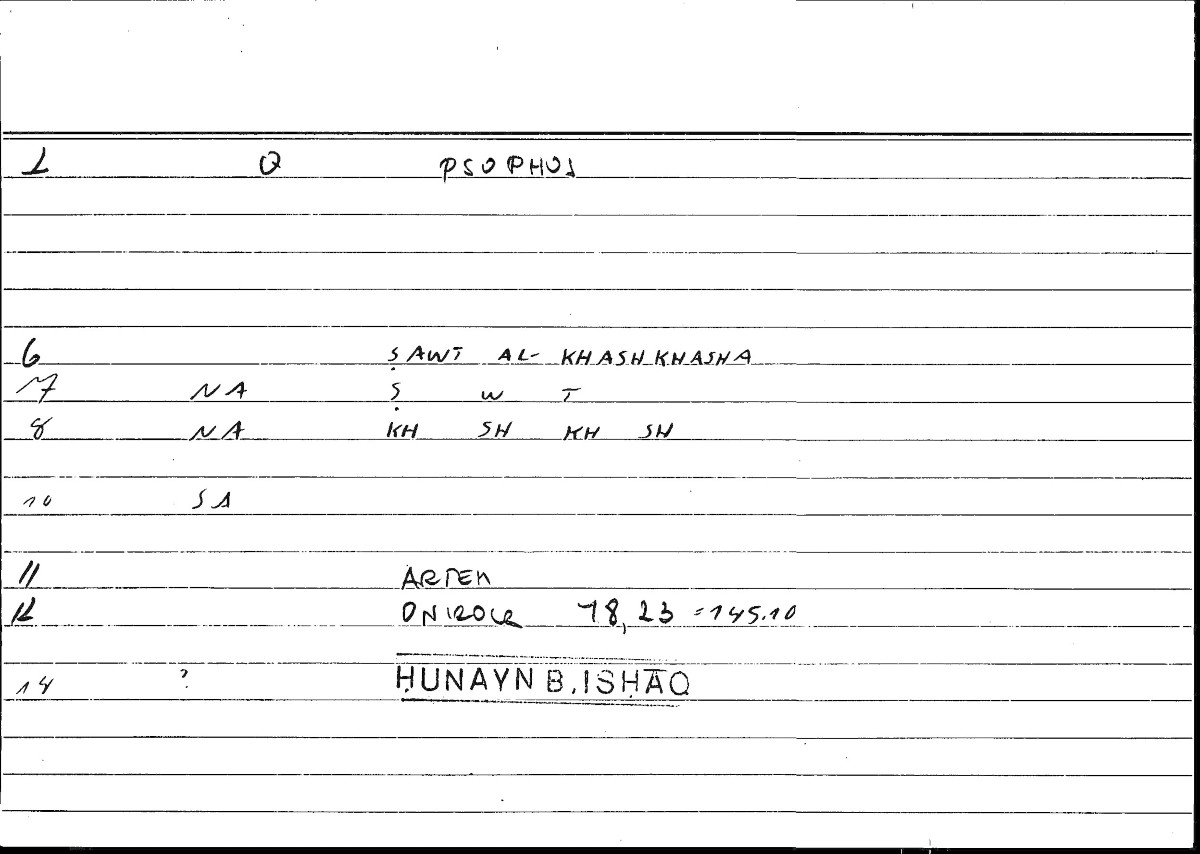 1 Q PSOPHOS
6 ṢAWT AL- KHASHKHASHA
7 NA Ṣ W T
8 NA KH SH KH SH
10 SA
11 ARTEM
12 ONIROCR 78,23 =145.10
14 ? ḤUNAYN B. ISḤĀQ